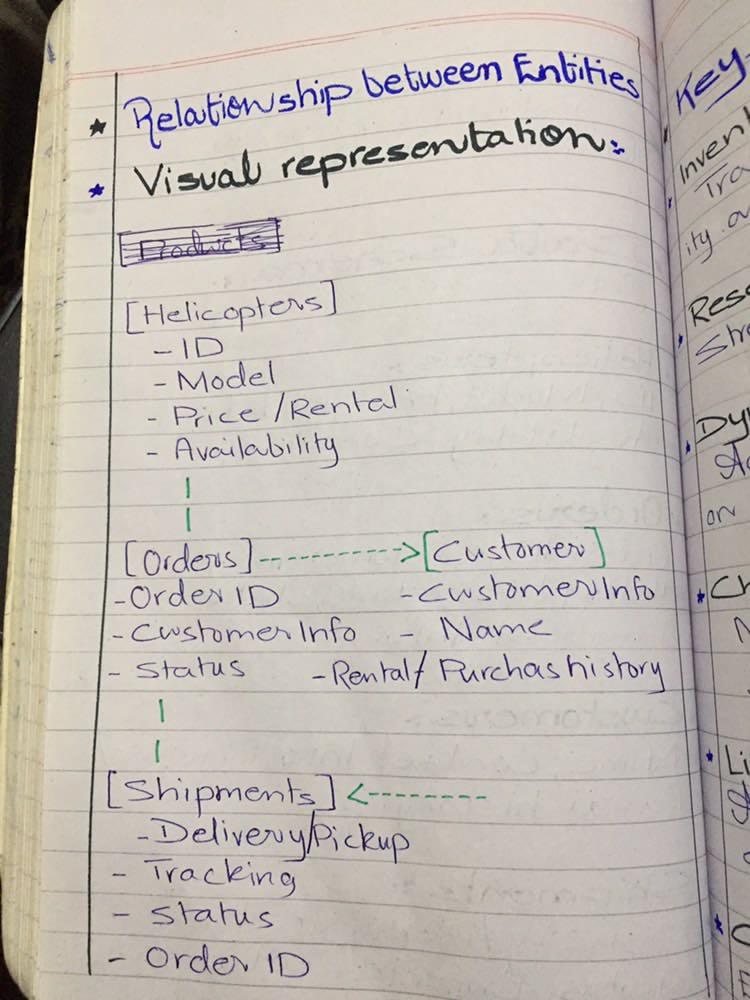 ★ Relationship between Entities
★ Visual representation:-
Products
[Helicopters]
- ID
- Model
- Price / Rental
- Availability
[Orders] --------> [Customer]
- Order ID - Customer Info
- Customer Info - Name
- Status - Rental / Purchas history
[Shipments] <--------
- Delivery/Pickup
- Tracking
- Status
- Order ID
Key
Invent
Tra
ity
Rese
Stre
Dy
on
Ch
Li